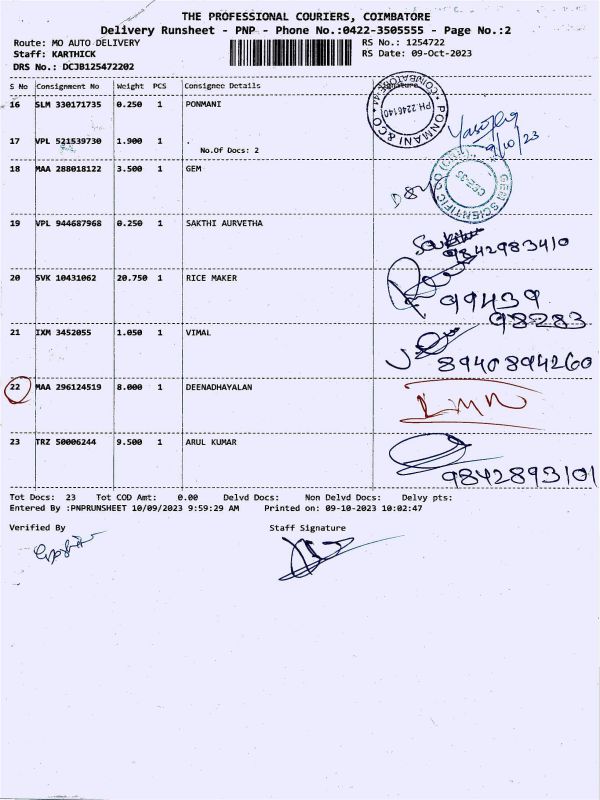 THE PROFESSIONAL COURIERS, COIMBATORE
Delivery Runsheet - PNP - Phone No.:0422-3505555 - Page No.:2
Route: MO AUTO DELIVERY RS No.: 1254722
Staff: KARTHICK RS Date: 09-Oct-2023
DRS No.: DCJB125472202
S No Consignment No Weight PCS Consignee Details Signature
16 SLM 330171735 0.250 1 PONMANI
PONMANI & CO
COIMBATORE-44
PH.2246140
17 VPL 521539730 1.900 1 .
No.Of Docs: 2
9/10/23
18 MAA 288018122 3.500 1 GEM
GEM SCIENTIFIC CO
CBE-35
19 VPL 944687968 0.250 1 SAKTHI AURVETHA
9842983410
20 SVK 10431062 20.750 1 RICE MAKER
99439
98283
21 IXM 3452055 1.050 1 VIMAL
8940894260
22 MAA 296124519 8.000 1 DEENADHAYALAN
23 TRZ 50006244 9.500 1 ARUL KUMAR
9842893101
Tot Docs: 23 Tot COD Amt: 0.00 Delvd Docs: Non Delvd Docs: Delvy pts:
Entered By :PNPRUNSHEET 10/09/2023 9:59:29 AM Printed on: 09-10-2023 10:02:47
Verified By Staff Signature